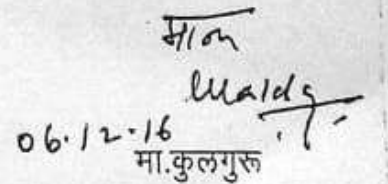 मान्य
06.12.16
मा.कुलगुरू